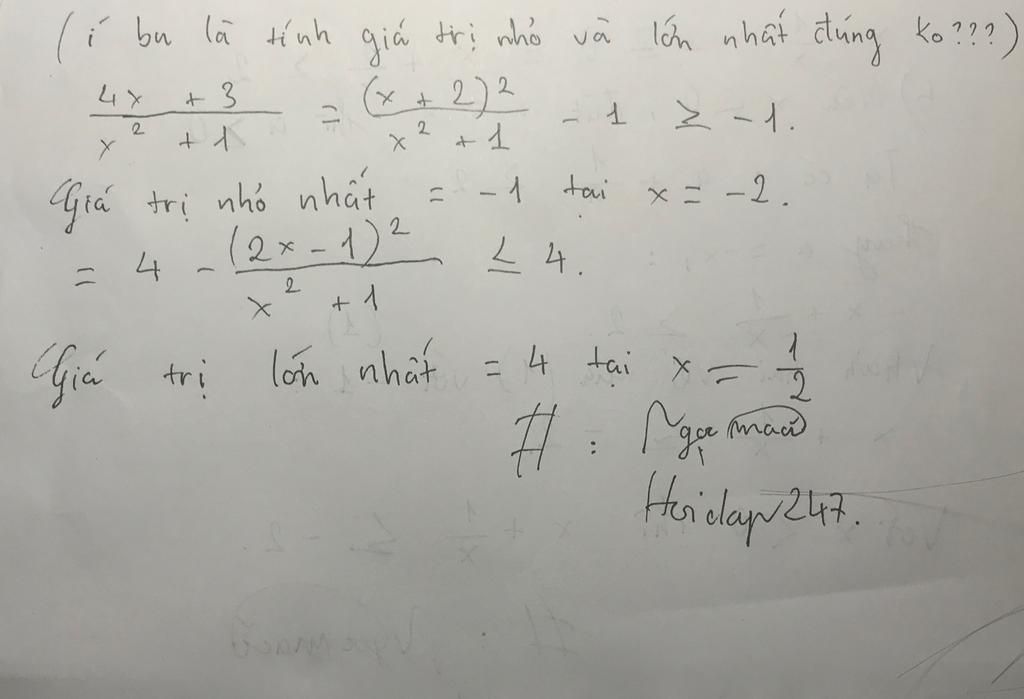 (í bn là tính giá trị nhỏ và lớn nhất đúng ko???)
\frac{4x + 3}{x^2 + 1} = \frac{(x + 2)^2}{x^2 + 1} - 1 ≥ -1.
Giá trị nhỏ nhất = -1 tại x = -2.
= 4 - \frac{(2x - 1)^2}{x^2 + 1} ≤ 4.
Giá trị lớn nhất = 4 tại x = \frac{1}{2}
# : Ngọc
Hoidap247.